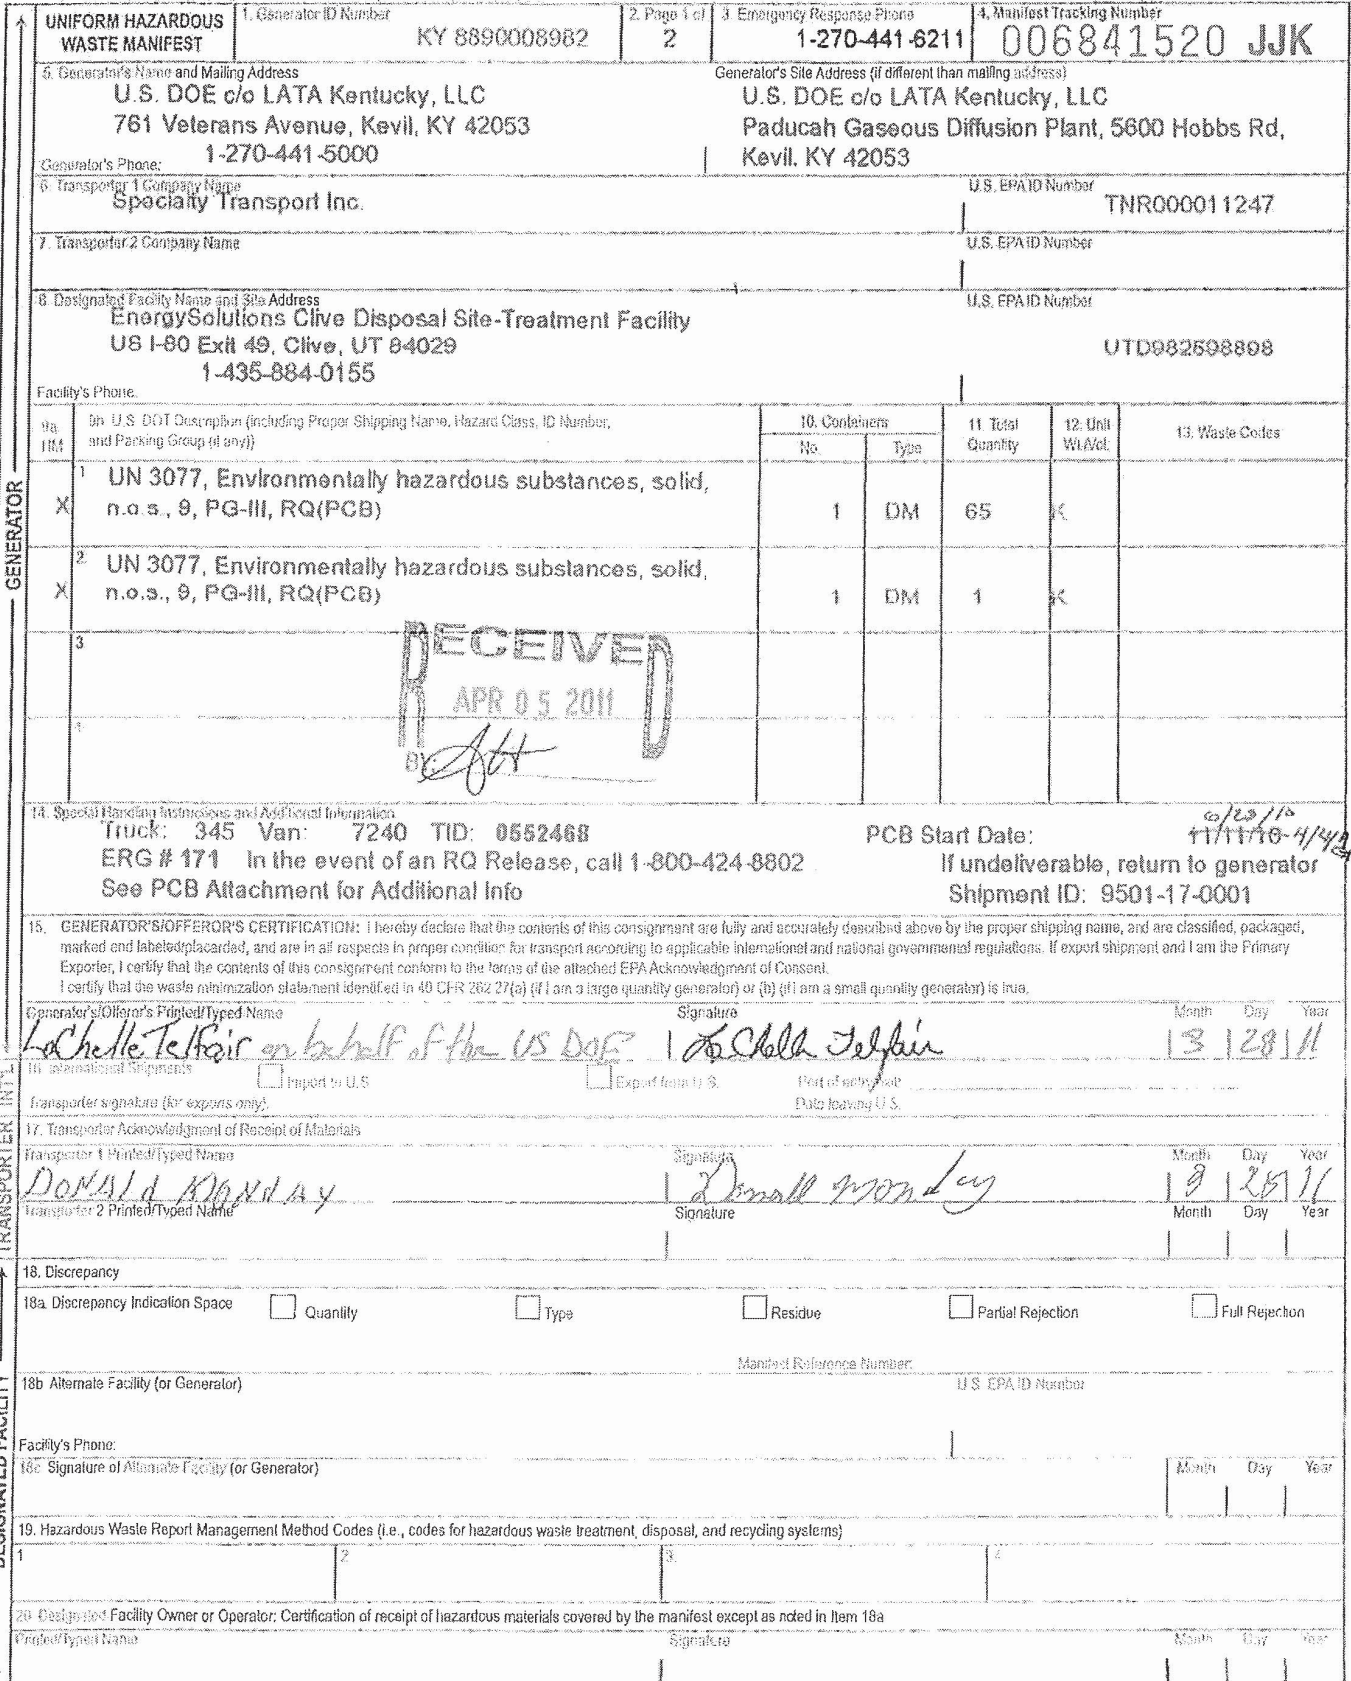 UNIFORM HAZARDOUS WASTE MANIFEST
1. Generator ID Number
KY 8890008982
2. Page 1 of
2
3. Emergency Response Phone
1-270-441-6211
4. Manifest Tracking Number
006841520 JJK
5. Generator's Name and Mailing Address
Generator's Site Address (if different than mailing address)
U.S. DOE c/o LATA Kentucky, LLC
U.S. DOE c/o LATA Kentucky, LLC
761 Veterans Avenue, Kevil, KY 42053
Paducah Gaseous Diffusion Plant, 5600 Hobbs Rd,
Generator's Phone: 1-270-441-5000
Kevil. KY 42053
6. Transporter 1 Company Name
U.S. EPA ID Number
Specialty Transport Inc.
TNR000011247
7. Transporter 2 Company Name
U.S. EPA ID Number
8. Designated Facility Name and Site Address
U.S. EPA ID Number
EnergySolutions Clive Disposal Site-Treatment Facility
US I-80 Exit 49, Clive, UT 84029
UTD982598898
1-435-884-0155
Facility's Phone.
9a. HM
9b. U.S. DOT Description (including Proper Shipping Name, Hazard Class, ID Number,
and Packing Group (if any))
10. Containers
No.
Type
11. Total Quantity
12. Unit Wt./Vol.
13. Waste Codes
1
UN 3077, Environmentally hazardous substances, solid,
X n.o.s., 9, PG-III, RQ(PCB) 1 DM 65 K
2
UN 3077, Environmentally hazardous substances, solid,
X n.o.s., 9, PG-III, RQ(PCB) 1 DM 1 K
3
RECEIVED
APR 05 2011
BY:
4
14. Special Handling Instructions and Additional Information
Truck: 345 Van: 7240 TID: 0552468
PCB Start Date: 11/11/10
ERG # 171 In the event of an RQ Release, call 1-800-424-8802
If undeliverable, return to generator
See PCB Attachment for Additional Info
Shipment ID: 9501-17-0001
15. GENERATOR'S/OFFEROR'S CERTIFICATION: I hereby declare that the contents of this consignment are fully and accurately described above by the proper shipping name, and are classified, packaged,
marked and labeled/placarded, and are in all respects in proper condition for transport according to applicable international and national governmental regulations. If export shipment and I am the Primary
Exporter, I certify that the contents of this consignment conform to the terms of the attached EPA Acknowledgment of Consent.
I certify that the waste minimization statement identified in 40 CFR 262.27(a) (if I am a large quantity generator) or (b) (if I am a small quantity generator) is true.
Generator's/Offeror's Printed/Typed Name
Signature
Month Day Year
LaChelle Telfair on behalf of the US DOE
LaChelle Telfair
3 28 11
16. International Shipments
Import to U.S.
Export from U.S.
Port of entry/exit:
Transporter signature (for exports only):
Date leaving U.S.
17. Transporter Acknowledgment of Receipt of Materials
Transporter 1 Printed/Typed Name
Signature
Month Day Year
DONALD MONDAY
Donald Monday
3 28 11
Transporter 2 Printed/Typed Name
Signature
Month Day Year
18. Discrepancy
18a. Discrepancy Indication Space
Quantity
Type
Residue
Partial Rejection
Full Rejection
Manifest Reference Number:
18b Alternate Facility (or Generator)
U.S. EPA ID Number
Facility's Phone:
18c Signature of Alternate Facility (or Generator)
Month Day Year
19. Hazardous Waste Report Management Method Codes (i.e., codes for hazardous waste treatment, disposal, and recycling systems)
1
2
3.
4
20 Designated Facility Owner or Operator: Certification of receipt of hazardous materials covered by the manifest except as noted in Item 18a
Printed/Typed Name
Signature
Month Day Year
GENERATOR
TRANSPORTER INT'L
DESIGNATED FACILITY